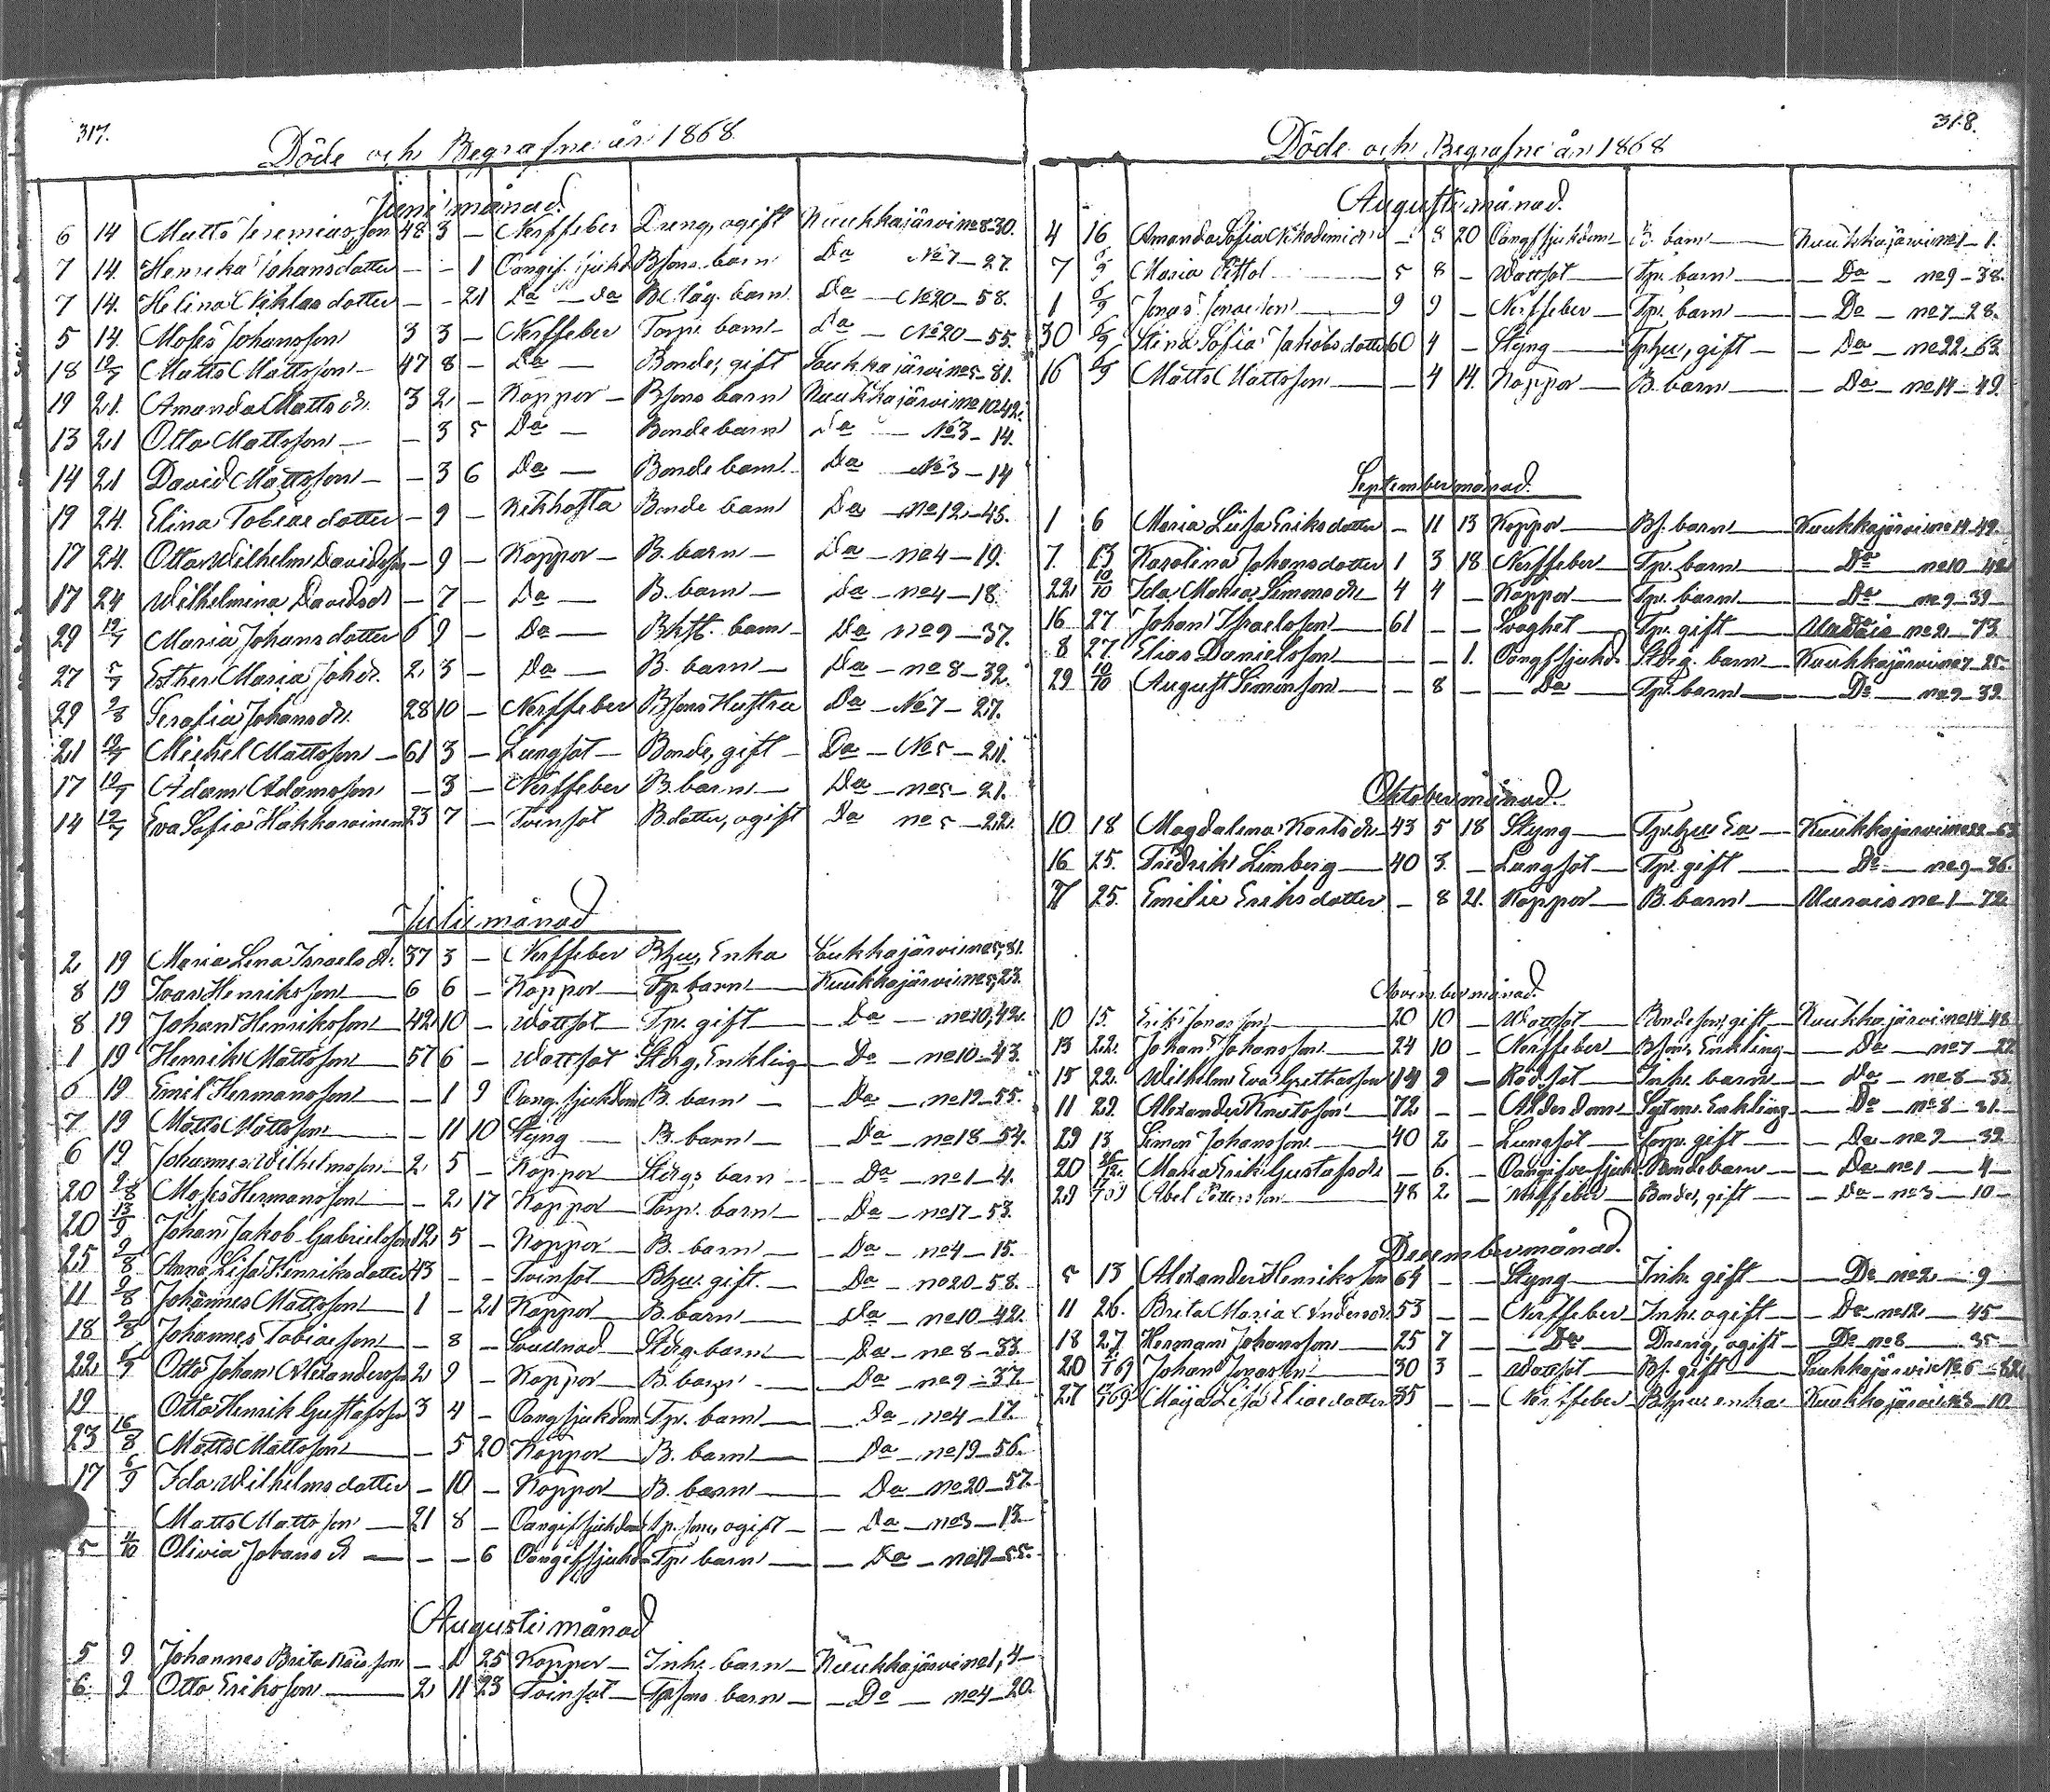 317.
Döde och Begrafne år 1868.
Juni månad.
6 14 Matts Jeremiasson 48 3 — Nerffeber Dreng, ogift Kuukkajärvi no 8-30.
7 14. Henrika Johansdotter — - 1 Oangif. sjukd. Bsons barn Da No 7 - 27.
7 14. Helina Niklasdotter — - 21 Da — da Da No 20 - 58.
5 14. Moses Johansson 3 3 — Nerffeber Torp. barn Da — No 20 — 55.
18 12/7 Matts Mattsson — 47 8 — Da — Bonde, gift Loukkajärvi no 5 - 81.
19 21. Amanda Matts dr. 3 2 — Koppor — Bsons barn Kuukkajärvi no 10-42.
13 21 Otto Mattsson — - 3 5 Da — Bonde barn Da — No 3 - 14.
14 21 David Mattsson — - 3 6 Da — Bonde barn Da — No 3 — 14
19 24. Elina Tobiasdotter — 9 — Kikhosta Bonde barn Da — No 12 — 45.
17 24. Otto Wilhelm Davidsson — 9 — Koppor — B. barn — Da — no 4 — 19.
17 24 Wilhelmina Davidsd — 7 — Da — B. barn — Da — no 4 — 18.
29 12/7 Maria Johansdotter 6 9 — Da — barn — Da no 9 — 37.
27 5/7 Esther Maria Joh.dr. 2 3 — Da — B. barn — Da — no 8 — 32.
29 2/8 Serafia Johansdr. 28 10 — Nerffeber Bsons Hustru Da — No 7 — 27.
21 12/7 Michel Mattsson — 61 3 — Lungsot — Bonde, gift — Da — No 5 — 21.
17 12/7 Adam Adamsson — 3 — Nerffeber B. barn — Da — no 5 — 21.
14 12/7 Eva Sofia Hakkarainen 23 7 — Tvinsot Bdotter, ogift Da no 5 — 22.
Juli månad
2 19 Maria Lena Israels dr. 37 3 — Nerffeber Bhu, Enka Loukkajärvi no 5, 81.
8 19 Ivar Henriksson — 6 6 — Koppor — Tp barn — Kuukkajärvi no 5, 23.
8 19 Johan Henriksson — 42 10 — Wattsot — Tp. gift — Da — no 10, 42.
1 19 Henrik Mattsson — 57 6 — Wattsot Stbrg, Enkling — Da — no 10 — 43.
6 19 Emil Hermansson — - 1 9 Oang. sjukdom B. barn — — Da — no 19 — 55.
7 19 Matts Mattsson — - 11 10 Styng — B. barn — — Da — no 18 — 54.
6 19 Johannes Wilhelmsson 2 5 — Koppor — barn — — Da — no 1 — 4.
20 2/8 Moses Hermansson — - 2 17 Koppor — Torp. barn — — Da — no 17 — 53.
20 13/9 Johan Jakob Gabrielsson 12 5 — Koppor — B. barn — — Da — no 4 — 15.
25 2/8 Anna Lisa Henriksdotter 43 — - Tvinsot — Bhu. gift. — Da — no 20 — 58.
11 2/8 Johannes Mattsson — 1 — 21 Koppor — B. barn — — Da — no 10 — 42.
18 2/8 Johannes Tobiasson — - 8 — barn — — Da — no 8 — 33.
22 6/9 Otto Johan Alexandersson 2 9 — Koppor — B. barn — — Da — no 9 — 37
19 Otto Henrik Gustafsson 3 4 — Oang sjukdom Tp. barn — Da — no 4 — 17.
23 16/8 Matts Mattsson — - 5 20 Koppor — B. barn — Da — no 19 — 56.
17 6/9 Ida Wilhelmsdotter — 10 — Koppor — B. barn — Da — no 20 — 57.
Matts Mattsson — 21 8 — Oangif sjukdom Tp. son, ogift — Da — no 3 — 13.
5 4/10 Olivia Johans d — - - 6 Oangif sjukd — Tp. barn — Da — no 19 — 55.
Augusti månad
5 9 Johannes Brita son — 1 25 Koppor — Inh. barn — Kuukkajärvi no 1, 4 —
6. 9 Otto Eriksson — 2 11 23 Tvinsot — Tpsons barn — — Do — no 4 — 20.
318.
Döde och Begrafne år 1868
Augusti månad.
4 16 Amanda Sofia — 8 20 Oangf sjukdom — barn — Kuukkajärvi no 1 — 1.
7 6/9 Maria — 5 8 — Wattsot — Tp. barn — Da — no 9 — 38.
1 6/9 Jonas Jonasson — 9 9 — Nerffeber — Tp. barn — Da — no 7 — 28.
30 6/9 Stina Sofia Jakobsdotter 60 4 — Styng — Tphu, gift — Da — no 22, 63
16 Matts Mattsson — — 4 14. Koppor — B. barn — Da — no 14 — 49.
September månad.
1 6 Maria Lisa Eriksdotter — 11 13 Koppor — Bs. barn — Kuukkajärvi no 14-49.
7. 13 Karolina Johansdotter 1 3 18 Nerffeber — Tp. barn — Da — no 10 — 42
22 10/10 Ida Maria Simonsdr — 4 4 — Koppor — Tp. barn — Da — no 9 — 39 —
16 27 Johan Israelsson — 61 — — Svaghet — Tp. gift — no 2 — 73.
8 27. Elias Danielsson — — - 1. Oangf sjukd. barn — Kuukkajärvi no 7 — 25
29 10/10 August Simonsson — — 8 — Da — Tp. barn — Do — no 9 — 39.
Oktober månad.
10 18 Magdalena dr — 43 5 18 Styng — Tp. hu Ea — Kuukkajärvi no 22 — 63
16 25. Fredrik Limberg — 40 3. — Lungsot — Tp. gift — Do — no 9 — 36.
7 25. Emilie Eriksdotter — 8 21. Koppor — B. barn — no 1 — 72
November månad.
10 15. Erik Jonasson — 20 10 — Wattsot — Bondeson, gift — Kuukkajärvi no 14 — 48
13 22. Johan Johansson — 24 10 — Nerffeber — Bson, Enkling — Da — no 7 — 27
15 22. Wilhelm Eva Grethasson 14 9 — Rödsot — Inh. barn — Da — no 8 — 33.
11 29. Alexander — 72 — - Ålderdom — Enkling — Da — no 8 — 31.
29 13 Simon Johansson — 40 2 — Lungsot — Torp. gift — — Da — no 9 — 39.
20 26/12. Maria Erik Gustafsdr — 6. — Oangifven sjukd Bonde barn — — Da no 1 — 4 —
29 Abel Pettersson — 48 2 — Nerffeber — Bonde, gift — — Da — no 3 — 10 —
December månad.
5 13 Alexander Henriksson 64 — - Styng — Inh. gift — — Do no 2 — 9
11 26. Brita Maria Andersdr 53 — - Nerffeber — Inh. ogift — Do — no 12 — 45 —
18 27 Herman Johansson — 25 7 — Do — Dreng, ogift — Do no 8 — 35 —
20 Johan Jonasson — 30 3 — Wattsot — Bs. gift — Loukkajärvi No 6 — 82
27 Maja Lisa Eliasdotter 35 — - Nerffeber — Bhu. enka — Kuukkajärvi no 3 — 10